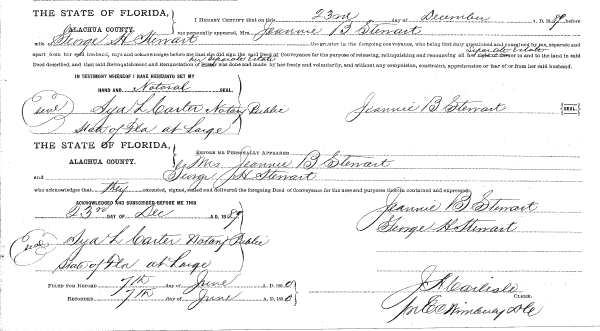 THE STATE OF FLORIDA,
ALACHUA COUNTY.
I HEREBY CERTIFY that on this 23rd day of December A. D. 1889, before
me personally appeared, Mrs. Jeannie B Stewart
wife George H Stewart the grantor in the foregoing conveyance, who being first duly questioned and examined by me, separate and
Separate Estate
apart, from her said husband, says and acknowledges before me that she did sign the said Deed of Conveyance for the purpose of releasing, relinquishing and renouncing all her right of Dower in and to the land in said
her Separate Estate
Deed described, and that said Relinquishment and Renunciation of Dower was done and made by her freely and voluntarily, and without any compulsion, constraint, apprehension or fear of or from her said husband.
IN TESTIMONY WHEREOF I HAVE HEREUNTO SET MY
HAND and Notarial SEAL.
Seal
Syd L Carter Notary Public
State of Fla at Large
Jeannie B Stewart SEAL
THE STATE OF FLORIDA,
ALACHUA COUNTY.
BEFORE ME PERSONALLY APPEARED
Mrs. Jeannie B Stewart
and George H Stewart
who acknowledges that they executed, signed, sealed and delivered the foregoing Deed of Conveyance for the uses and purposes therein contained and expressed.
ACKNOWLEDGED AND SUBSCRIBED BEFORE ME THIS
23rd DAY OF Dec A. D. 1889
Jeannie B Stewart
George H Stewart
Seal
Syd L Carter Notary Public
State of Fla at Large
FILED FOR RECORD 7th day of June A. D. 1890
RECORDED 7th day of June A. D. 1890
J A Carlisle
CLERK.